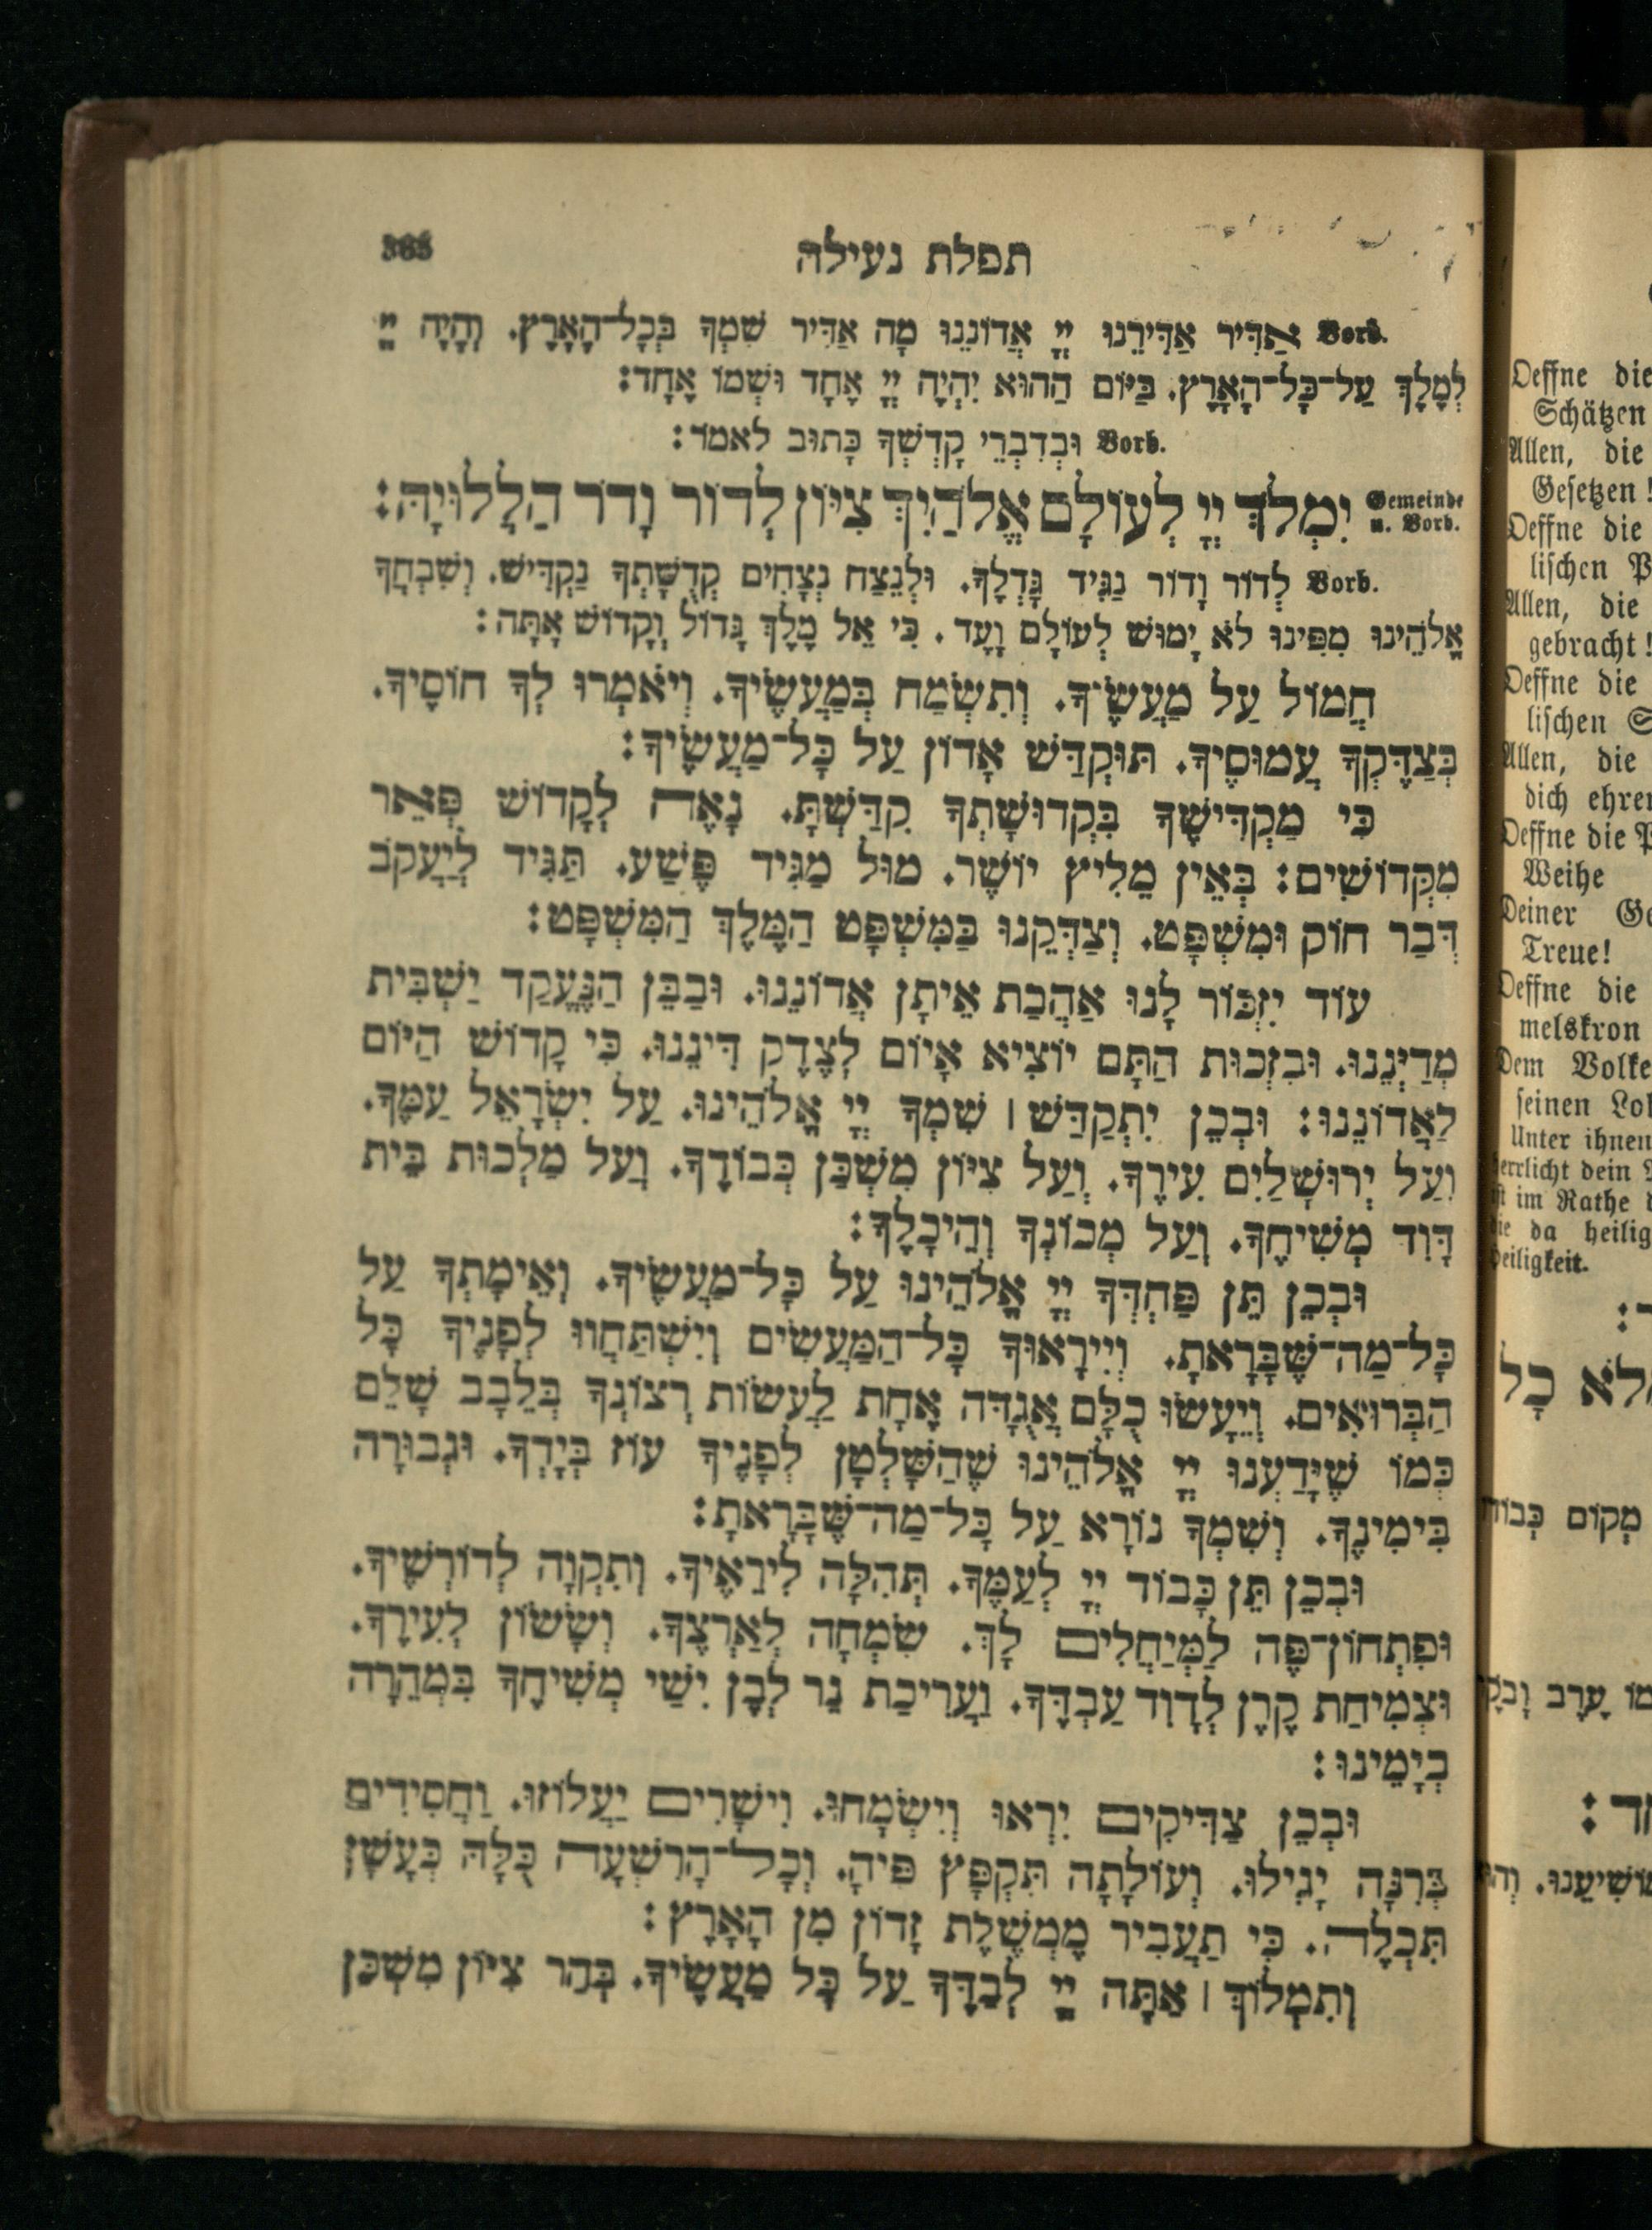 תפלת נעילה 365
Vorb. אַדִּיר אַדִּירֵנוּ יְיָ אֲדוֹנֵנוּ מָה אַדִּיר שִׁמְךָ בְּכָל־הָאָרֶץ. וְהָיָה יְיָ
לְמֶלֶךְ עַל־כָּל־הָאָרֶץ. בַּיּוֹם הַהוּא יִהְיֶה יְיָ אֶחָד וּשְׁמוֹ אֶחָד:
Vorb. וּבְדִבְרֵי קָדְשְׁךָ כָּתוּב לאמר:
Gemeinde u. Vorb. יִמְלֹךְ יְיָ לְעוֹלָם אֱלֹהַיִךְ צִיּוֹן לְדוֹר וָדֹר הַלֲלוּיָהּ:
Vorb. לְדוֹר וָדוֹר נַגִּיד גָּדְלֶךָ. וּלְנֵצַח נְצָחִים קְדֻשָּׁתְךָ נַקְדִּישׁ. וְשִׁבְחֲךָ
אֱלֹהֵינוּ מִפִּינוּ לֹא יָמוּשׁ לְעוֹלָם וָעֶד. כִּי אֵל מֶלֶךְ גָּדוֹל וְקָדוֹשׁ אָתָּה:
חֲמוֹל עַל מַעֲשֶׂיךָ. וְתִשְׂמַח בְּמַעֲשֶׂיךָ. וְיֹאמְרוּ לְךָ חוֹסֶיךָ.
בְּצַדֶּקְךָ עֲמוּסֶיךָ. תּוּקְדַּשׁ אָדוֹן עַל כָּל־מַעֲשֶׂיךָ:
כִּי מַקְדִּישֶׁךָ בִּקְדוּשָׁתְךָ קִדַּשְׁתָּ. נָאֶה לְקָדוֹשׁ פְּאֵר
מִקְּדוֹשִׁים: בְּאֵין מֵלִיץ יוֹשֶׁר. מוּל מַגִּיד פֶּשַׁע. תַּגִּיד לְיַעֲקֹב
דְּבַר חוֹק וּמִשְׁפָּט. וְצַדְּקֵנוּ בַּמִּשְׁפָּט הַמֶּלֶךְ הַמִּשְׁפָּט:
עוֹד יִזְכּוֹר לָנוּ אַהֲבַת אֵיתָן אֲדוֹנֵנוּ. וּבַבֵּן הַנֶּעֱקַד יַשְׁבִּית
מְדַיְּנֵנוּ. וּבִזְכוּת הַתָּם יוֹצִיא אָיוֹם לְצֶדֶק דִּינֵנוּ. כִּי קָדוֹשׁ הַיּוֹם
לַאֲדוֹנֵנוּ: וּבְכֵן יִתְקַדַּשׁ | שִׁמְךָ יְיָ אֱלֹהֵינוּ. עַל יִשְׂרָאֵל עַמֶּךָ.
וְעַל יְרוּשָׁלַיִם עִירֶךָ. וְעַל צִיּוֹן מִשְׁכַּן כְּבוֹדֶךָ. וְעַל מַלְכוּת בֵּית
דָּוִד מְשִׁיחֶךָ. וְעַל מְכוֹנְךָ וְהֵיכָלֶךָ:
וּבְכֵן תֵּן פַּחְדְּךָ יְיָ אֱלֹהֵינוּ עַל כָּל־מַעֲשֶׂיךָ. וְאֵימָתְךָ עַל
כָּל־מַה־שֶּׁבָּרָאתָ. וְיִירָאוּךָ כָּל־הַמַּעֲשִׂים וְיִשְׁתַּחֲווּ לְפָנֶיךָ כָּל
הַבְּרוּאִים. וְיֵעָשׂוּ כֻלָּם אֲגֻדָּה אֶחָת לַעֲשׂוֹת רְצוֹנְךָ בְּלֵבָב שָׁלֵם
כְּמוֹ שֶׁיָּדַעְנוּ יְיָ אֱלֹהֵינוּ שֶׁהַשָּׁלְטָן לְפָנֶיךָ עוֹז בְּיָדְךָ. וּגְבוּרָה
בִּימִינֶךָ. וְשִׁמְךָ נוֹרָא עַל כָּל־מַה־שֶּׁבָּרָאתָ:
וּבְכֵן תֵּן כָּבוֹד יְיָ לְעַמֶּךָ. תְּהִלָּה לִירֵאֶיךָ. וְתִקְוָה לְדוֹרְשֶׁיךָ.
וּפִתְחוֹן־פֶּה לַמְיַחֲלִים לָךְ. שִׂמְחָה לְאַרְצֶךָ. וְשָׂשׂוֹן לְעִירֶךָ.
וּצְמִיחַת קֶרֶן לְדָוִד עַבְדֶּךָ. וַעֲרִיכַת נֵר לְבֶן יִשַׁי מְשִׁיחֶךָ בִּמְהֵרָה
בְיָמֵינוּ:
וּבְכֵן צַדִּיקִים יִרְאוּ וְיִשְׂמָחוּ. וִישָׁרִים יַעֲלוֹזוּ. וַחֲסִידִים
בְּרִנָּה יָגִילוּ. וְעוֹלָתָה תִּקְפָּץ פִּיהָ. וְכָל־הָרִשְׁעָה כֻּלָּהּ כְּעָשָׁן
תִּכְלֶה. כִּי תַעֲבִיר מֶמְשֶׁלֶת זָדוֹן מִן הָאָרֶץ:
וְתִמְלוֹךְ | אַתָּה יְיָ לְבַדֶּךָ עַל כָּל מַעֲשֶׂיךָ. בְּהַר צִיּוֹן מִשְׁכַּן
Oeffne die
Schätzen
Allen, die
Gesetzen!
Oeffne die
lischen P
Allen, die
gebracht!
Oeffne die
lischen S
Allen, die
dich ehre
Oeffne die P
Weihe
Deiner Ge
Treue!
Oeffne die
melskron
Dem Volke
seinen Lo
Unter ihnen
herrlicht dein
ist im Rathe
die da heilig
Heiligkeit.
לֹא כָל
מְקוֹם כְּבוֹד
עֶרֶב